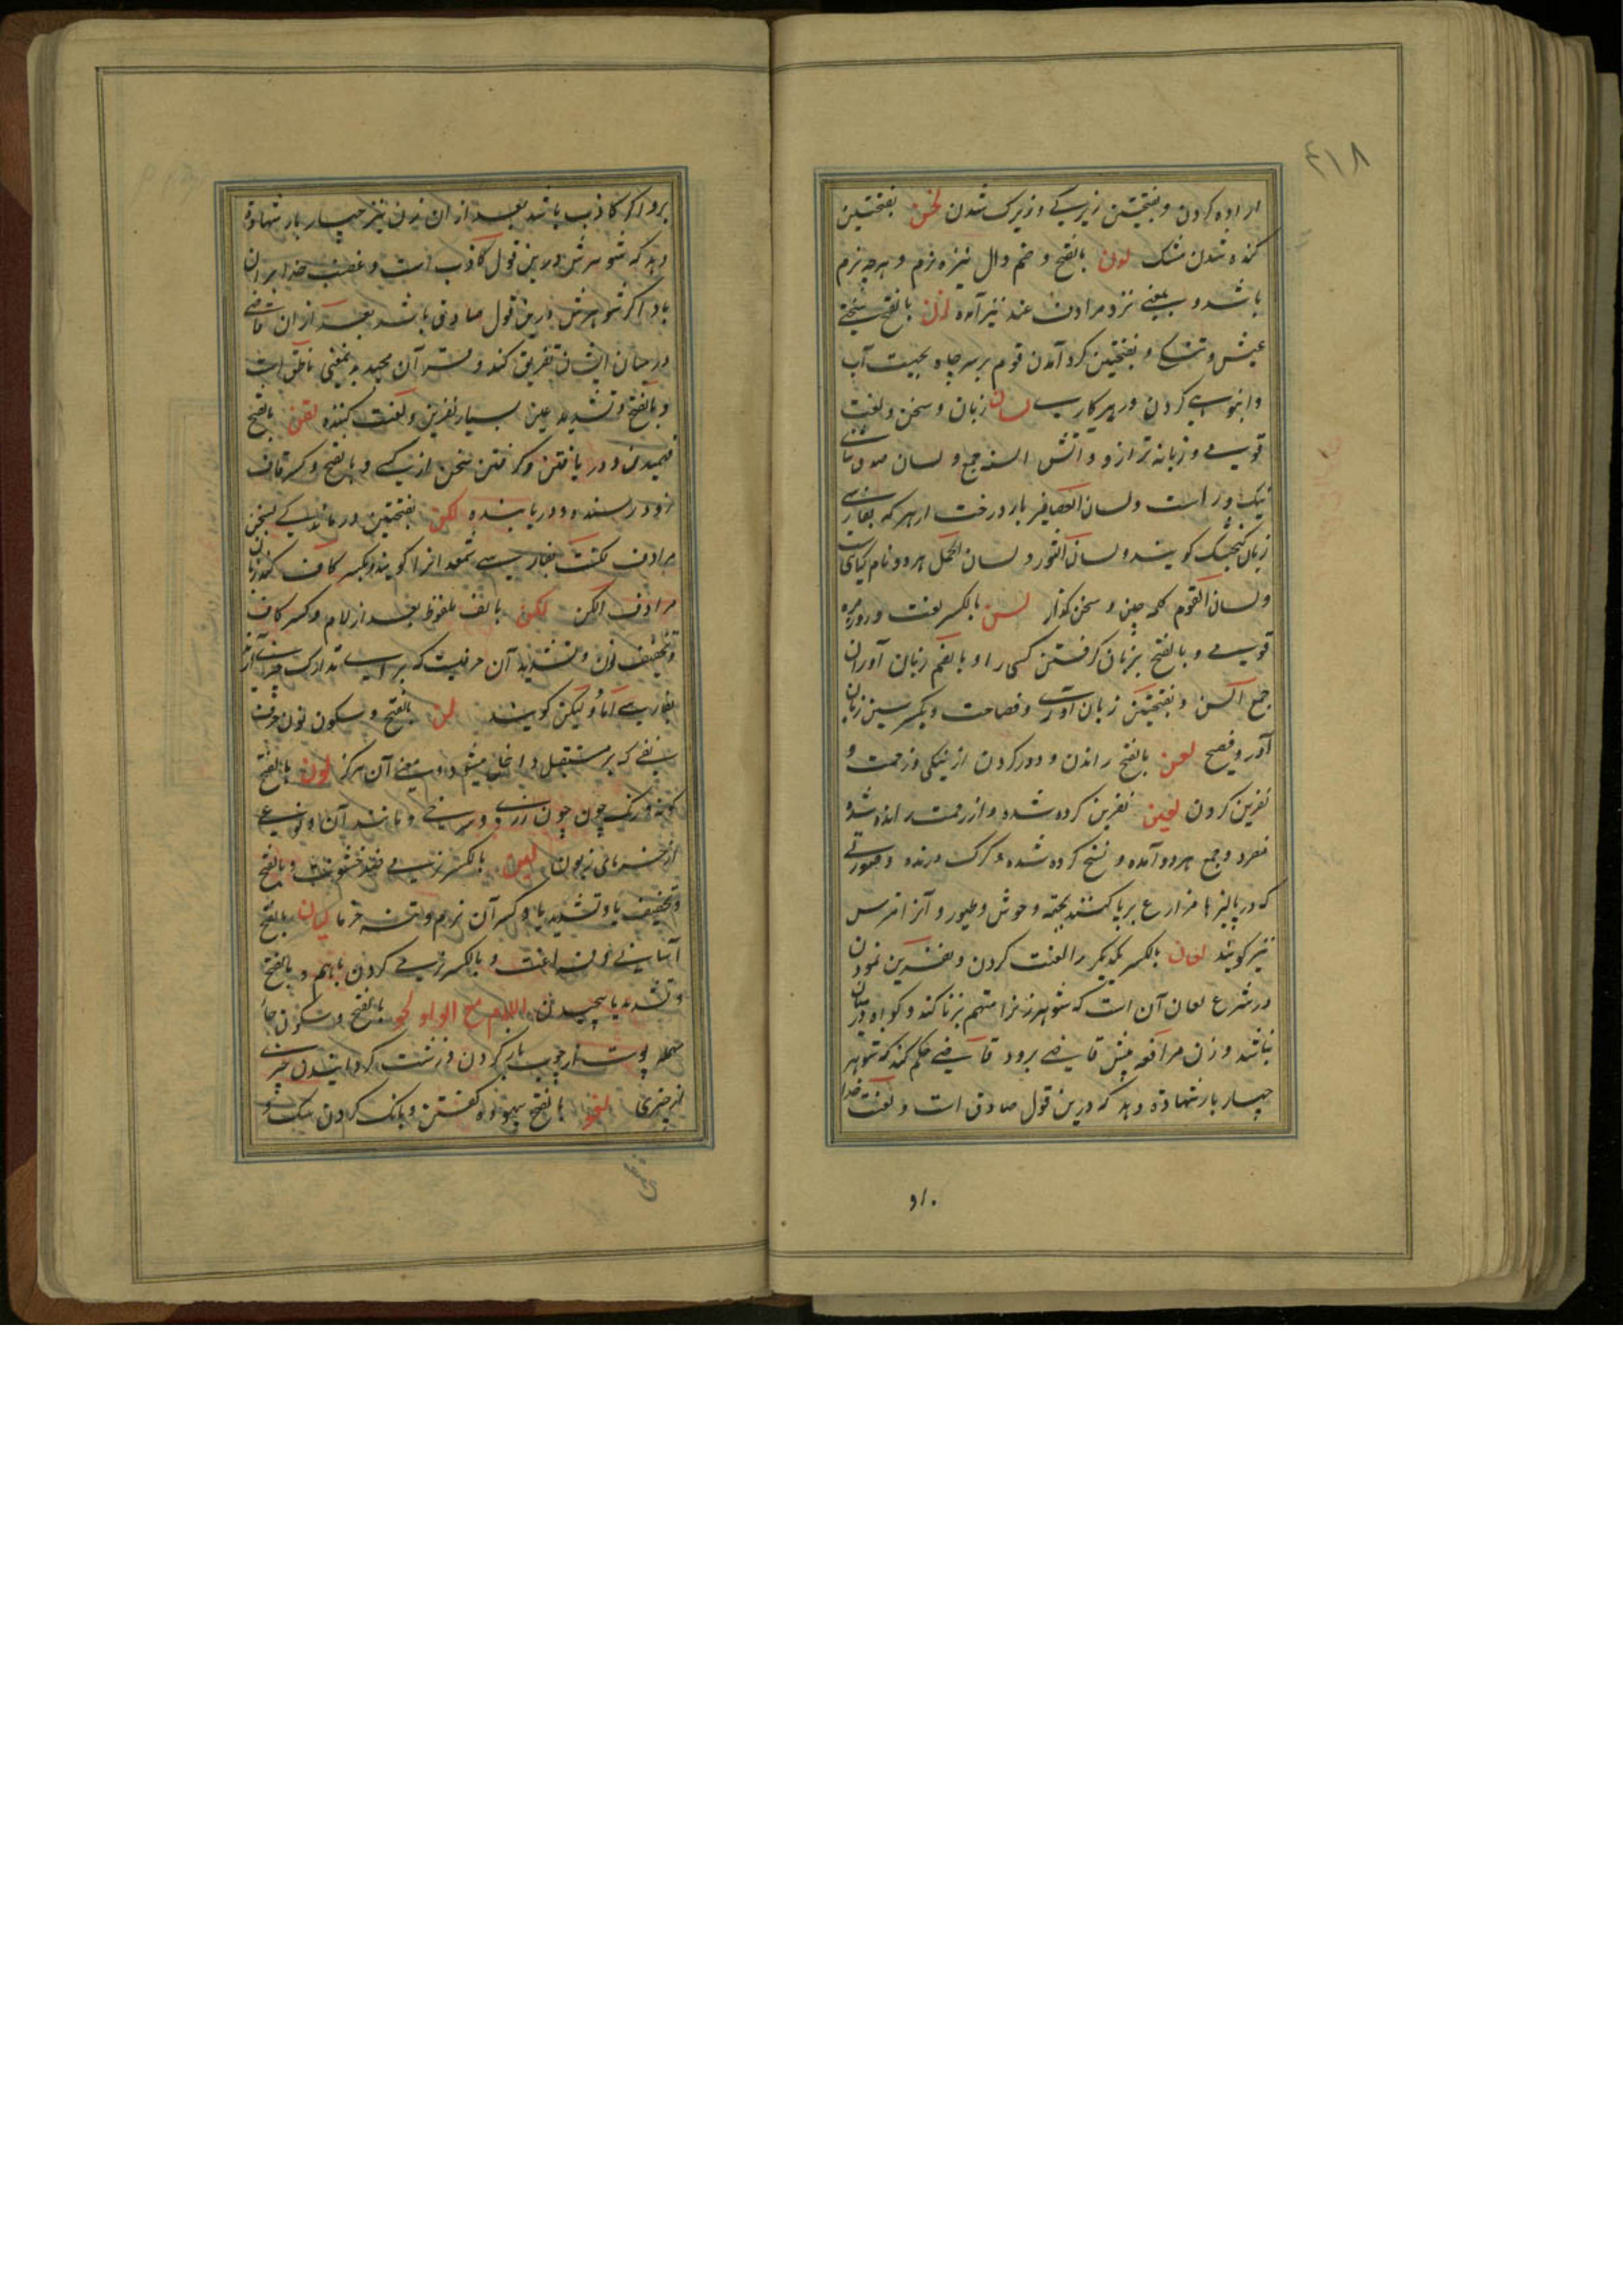 ۴۱۸
اراده کردن و بفتحتین زیرکی و زیرک شدن لخن بفتحتین
کنده شدن مشک لدن بالفتح و ضم دال نیزه نرم و هرچه نرم
باشد و بمعنی نزد مرادف عند نیز آمده لزن بالفتح سختی
عیش و تنکی و بفتحتین کرد آمدن قوم بر سر چاه بجهت آب
و انبوهی کردن در هر کاری لسان زبان و سخن و لغت
قومی و زبانه ترازو و آتش السنه جمع و لسان صدق ثنای
نیک و راست و لسان العصافیر بار درخت ارهر که بفارسی
زبان کنجشک کویند و لسان الثور و لسان الحمل هر دو نام کیاهی
و لسان القوم کلمه چین و سخن کذار لسن بالکسر لغت و روزمره
قومی و بالفتح بزبان کرفتن کسی را و بالضم زبان آوران
جمع السن و بفتحتین زبان آوری و فصاحت و بکسر سین زبان
آور و فصیح لعن بالفتح راندن و دور کردن از نیکی و رحمت و
نفرین کردن لعین نفرین کرده شده و از رحمت رانده شده
مفرد و جمع هر دو آمده و نسخ کرده شده و کرک درنده و صورتی
که در پالیزها و مزارع برپا کنند بجهة وحوش و طیور و آنرا مترس
نیز کویند لعان بالکسر یکدیکر را لعنت کردن و نفرین نمودن
در شرع لعان آن است که شوهر زنرا متهم بزنا کند و کواه در میان
نباشد و زن مرافعه پیش قاضی برود قاضی حکم کند که شوهر
چهار بار شهادة دهد که درین قول صادق است و لعنت خدا
برو اکر کاذب باشد بعد از ان زن نیز چهار بار شهادة
دهد که شوهرش درین قول کاذب است و غضب خدا بر ان
باد اکر شوهرش درین قول صادق باشد بعد از ان قاضی
در میان ایشان تفریق کند و قرآن مجید به نمعنی ناطق است
و بالفتح و تشدید عین بسیار نفرین و لعنت کننده لقن بالفتح
فهمیدن و دریافتن و کرفتن سخن از کسی و بالفتح و کسر قاف
زود رسنده و دریابنده لکن بفتحتین درماندکی بسخن
مرادف لکنت بفارسی آنرا کویند و بکسر کاف کند زبان
مرادف الکن لکن بالف ملفوظ بعد از لام و کسر کاف
و تخفیف نون و تشدید آن حرفیست که برای تدارک آید آنرا
بفارسی اما و لیکن کویند لن بالفتح و سکون نون حرف
نفی که بر مستقبل داخل میشود و بمعنی آن هرکز لون بالفتح
کونه و رنک چون زردی و سرخی و مانند آن و نوعی
از خرمای زبون لین بالکسر نرمی ضد خشونت و بالفتح
و تخفیف یا و تشدید یا و کسر آن نرم و تنه خرما لیان بالفتح
آسانی و فراغت و بالکسر نرمی کردن باهم و بالفتح
و تشدید یا پیچیدن اللام مع الواو لحو بالفتح و سکون حا
مهمله پوست از چوب باز کردن و زشت کردانیدن چیزی
از چیزی لغو بالفتح بیهوده کفتن و بانک کردن سک و